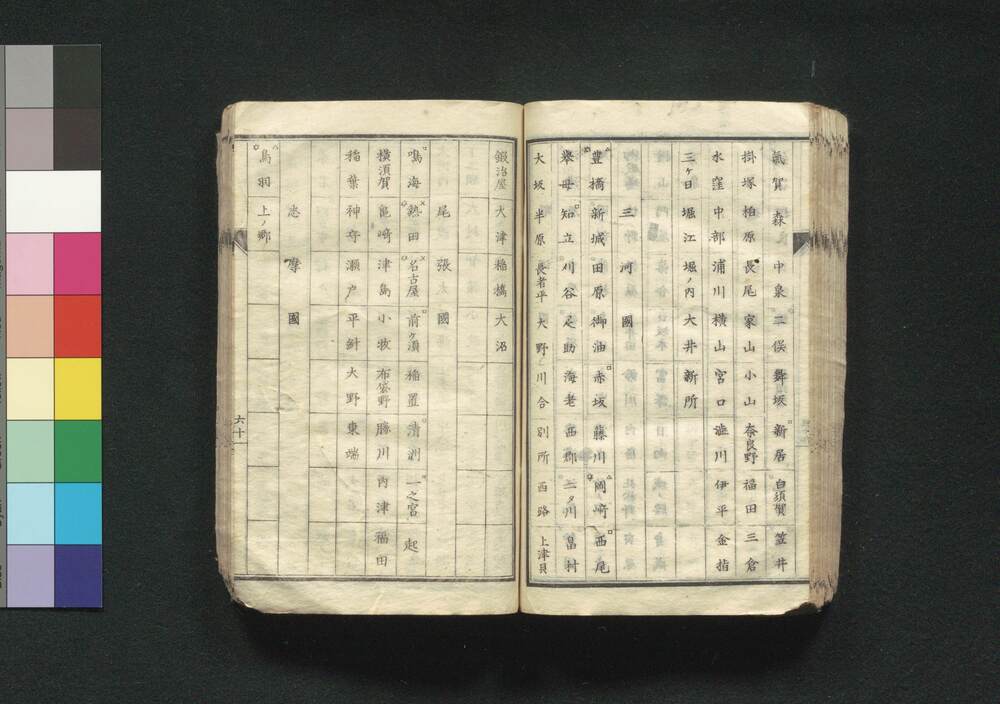 氣賀 森 中泉 二俣 舞坂 新居 白須賀 笠井
掛塚 柏原 長尾 家山 小山 奈良野 福田 三倉
水窪 中部 浦川 横山 宮口 澁川 伊平 金指
三ケ日 堀江 堀ノ内 大井 新所
三河國
豊橋 新城 田原 御油 赤坂 藤川 岡崎 西尾
擧母 知立 刈谷 足助 海老 西郡 一ノ川 畠村
大坂 半原 長者平 大野 川合 別所 西路 上津貝
鍛冶屋 大津 稲橋 大沼
尾張國
鳴海 熱田 名古屋 前ケ須 稲置 清洲 一之宮 起
横須賀 亀崎 津島 小牧 布袋野 勝川 内津 福田
稲葉 神守 瀬戸 平針 大野 東端
志摩國
鳥羽 上ノ郷
六十一